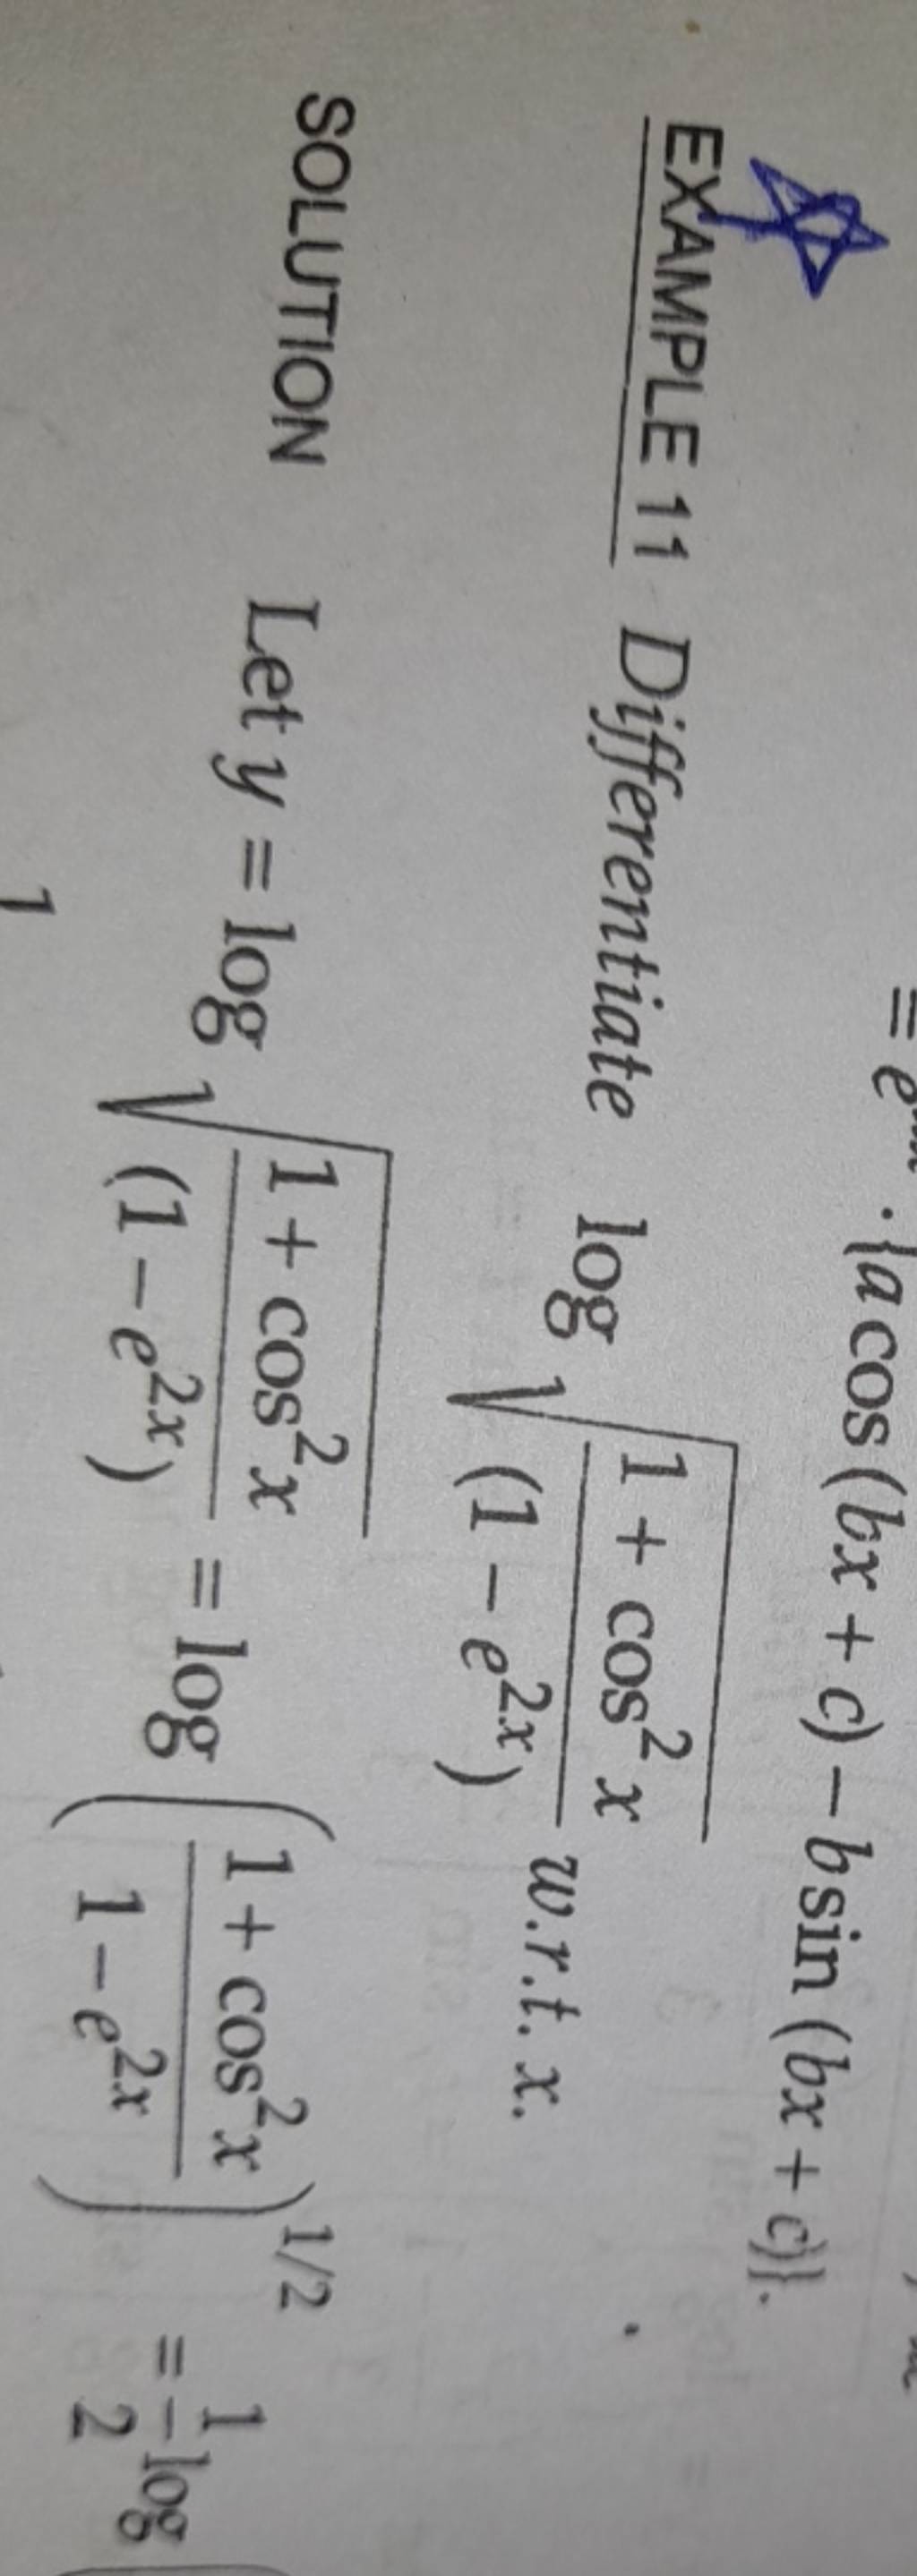 = e · {a cos (bx + c) – b sin (bx + c)}.
EXAMPLE 11 Differentiate log √((1 + cos² x)/(1 – e²ˣ)) w.r.t. x.
SOLUTION Let y = log √((1 + cos² x)/(1 – e²ˣ)) = log ((1 + cos² x)/(1 – e²ˣ))^1/2 = 1/2 log (
1